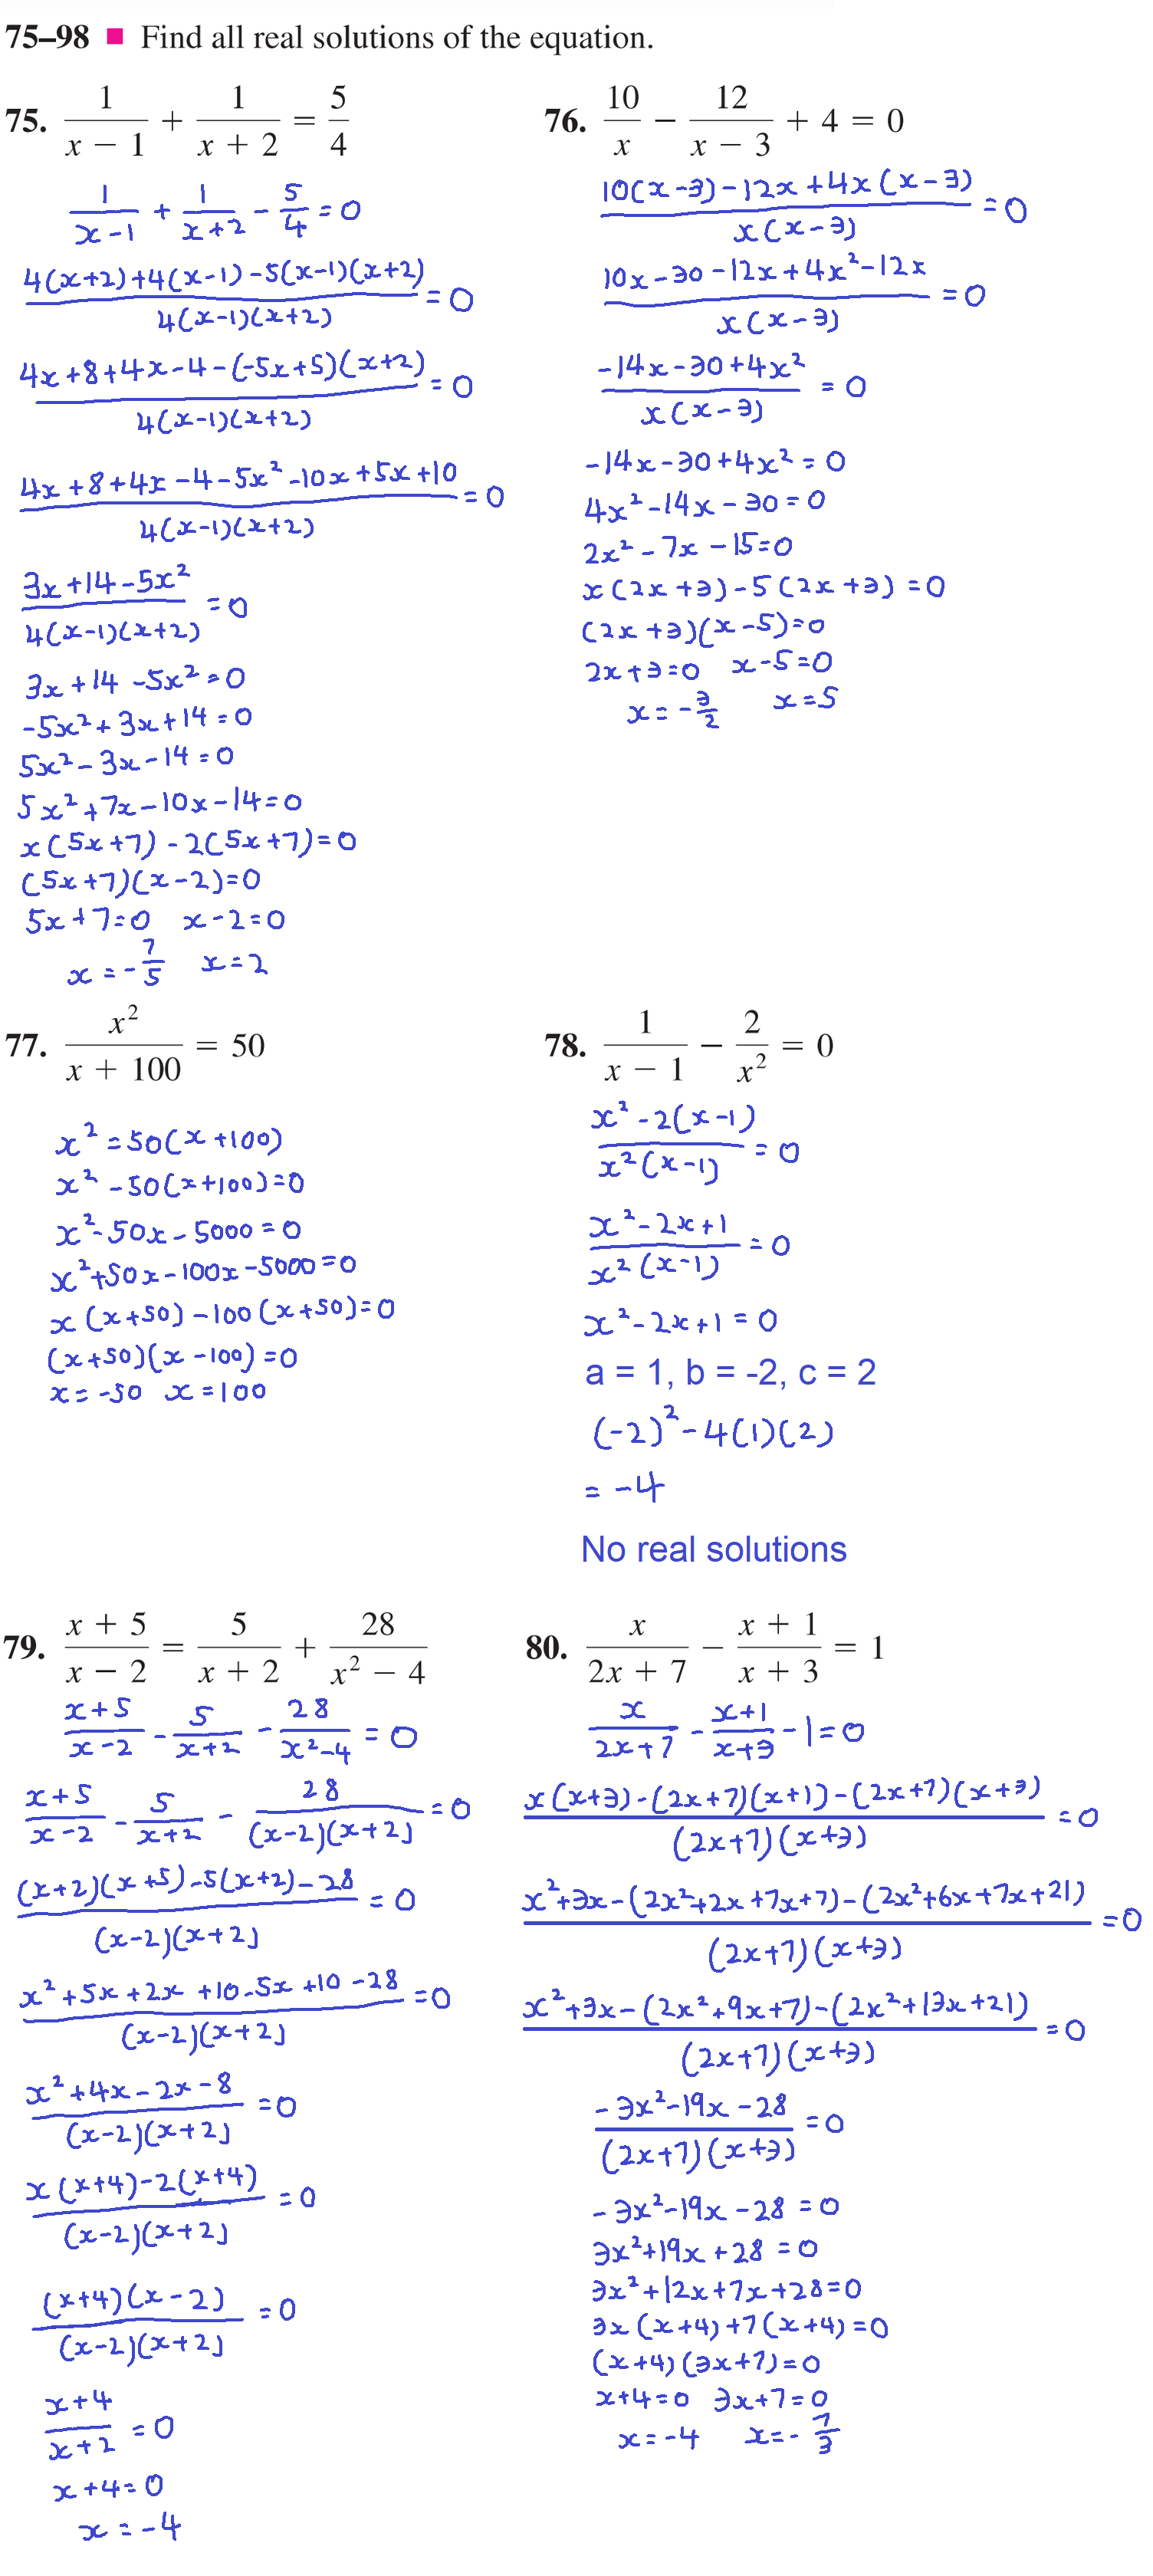 75–98 ■ Find all real solutions of the equation.
75. 1/(x − 1) + 1/(x + 2) = 5/4
1/(x-1) + 1/(x+2) - 5/4 = 0
(4(x+2)+4(x-1)-5(x-1)(x+2))/(4(x-1)(x+2)) = 0
(4x+8+4x-4-(-5x+5)(x+2))/(4(x-1)(x+2)) = 0
(4x+8+4x-4-5x²-10x+5x+10)/(4(x-1)(x+2)) = 0
(3x+14-5x²)/(4(x-1)(x+2)) = 0
3x+14-5x²=0
-5x²+3x+14=0
5x²-3x-14=0
5x²+7x-10x-14=0
x(5x+7)-2(5x+7)=0
(5x+7)(x-2)=0
5x+7=0 x-2=0
x=-7/5 x=2
76. 10/x − 12/(x − 3) + 4 = 0
(10(x-3)-12x+4x(x-3))/(x(x-3)) = 0
(10x-30-12x+4x²-12x)/(x(x-3)) = 0
(-14x-30+4x²)/(x(x-3)) = 0
-14x-30+4x²=0
4x²-14x-30=0
2x²-7x-15=0
x(2x+3)-5(2x+3)=0
(2x+3)(x-5)=0
2x+3=0 x-5=0
x=-3/2 x=5
77. x²/(x + 100) = 50
x²=50(x+100)
x²-50(x+100)=0
x²-50x-5000=0
x²+50x-100x-5000=0
x(x+50)-100(x+50)=0
(x+50)(x-100)=0
x=-50 x=100
78. 1/(x − 1) − 2/x² = 0
(x²-2(x-1))/(x²(x-1)) = 0
(x²-2x+1)/(x²(x-1)) = 0
x²-2x+1=0
a = 1, b = -2, c = 2
(-2)²-4(1)(2)
= -4
No real solutions
79. (x + 5)/(x − 2) = 5/(x + 2) + 28/(x² − 4)
(x+5)/(x-2) - 5/(x+2) - 28/(x²-4) = 0
(x+5)/(x-2) - 5/(x+2) - 28/((x-2)(x+2)) = 0
((x+2)(x+5)-5(x+2)-28)/((x-2)(x+2)) = 0
(x²+5x+2x+10-5x+10-28)/((x-2)(x+2)) = 0
(x²+4x-2x-8)/((x-2)(x+2)) = 0
(x(x+4)-2(x+4))/((x-2)(x+2)) = 0
((x+4)(x-2))/((x-2)(x+2)) = 0
(x+4)/(x+2) = 0
x+4=0
x=-4
80. x/(2x + 7) − (x + 1)/(x + 3) = 1
x/(2x+7) - (x+1)/(x+3) - 1 = 0
(x(x+3)-(2x+7)(x+1)-(2x+7)(x+3))/((2x+7)(x+3)) = 0
(x²+3x-(2x²+2x+7x+7)-(2x²+6x+7x+21))/((2x+7)(x+3)) = 0
(x²+3x-(2x²+9x+7)-(2x²+13x+21))/((2x+7)(x+3)) = 0
(-3x²-19x-28)/((2x+7)(x+3)) = 0
-3x²-19x-28=0
3x²+19x+28=0
3x²+12x+7x+28=0
3x(x+4)+7(x+4)=0
(x+4)(3x+7)=0
x+4=0 3x+7=0
x=-4 x=-7/3